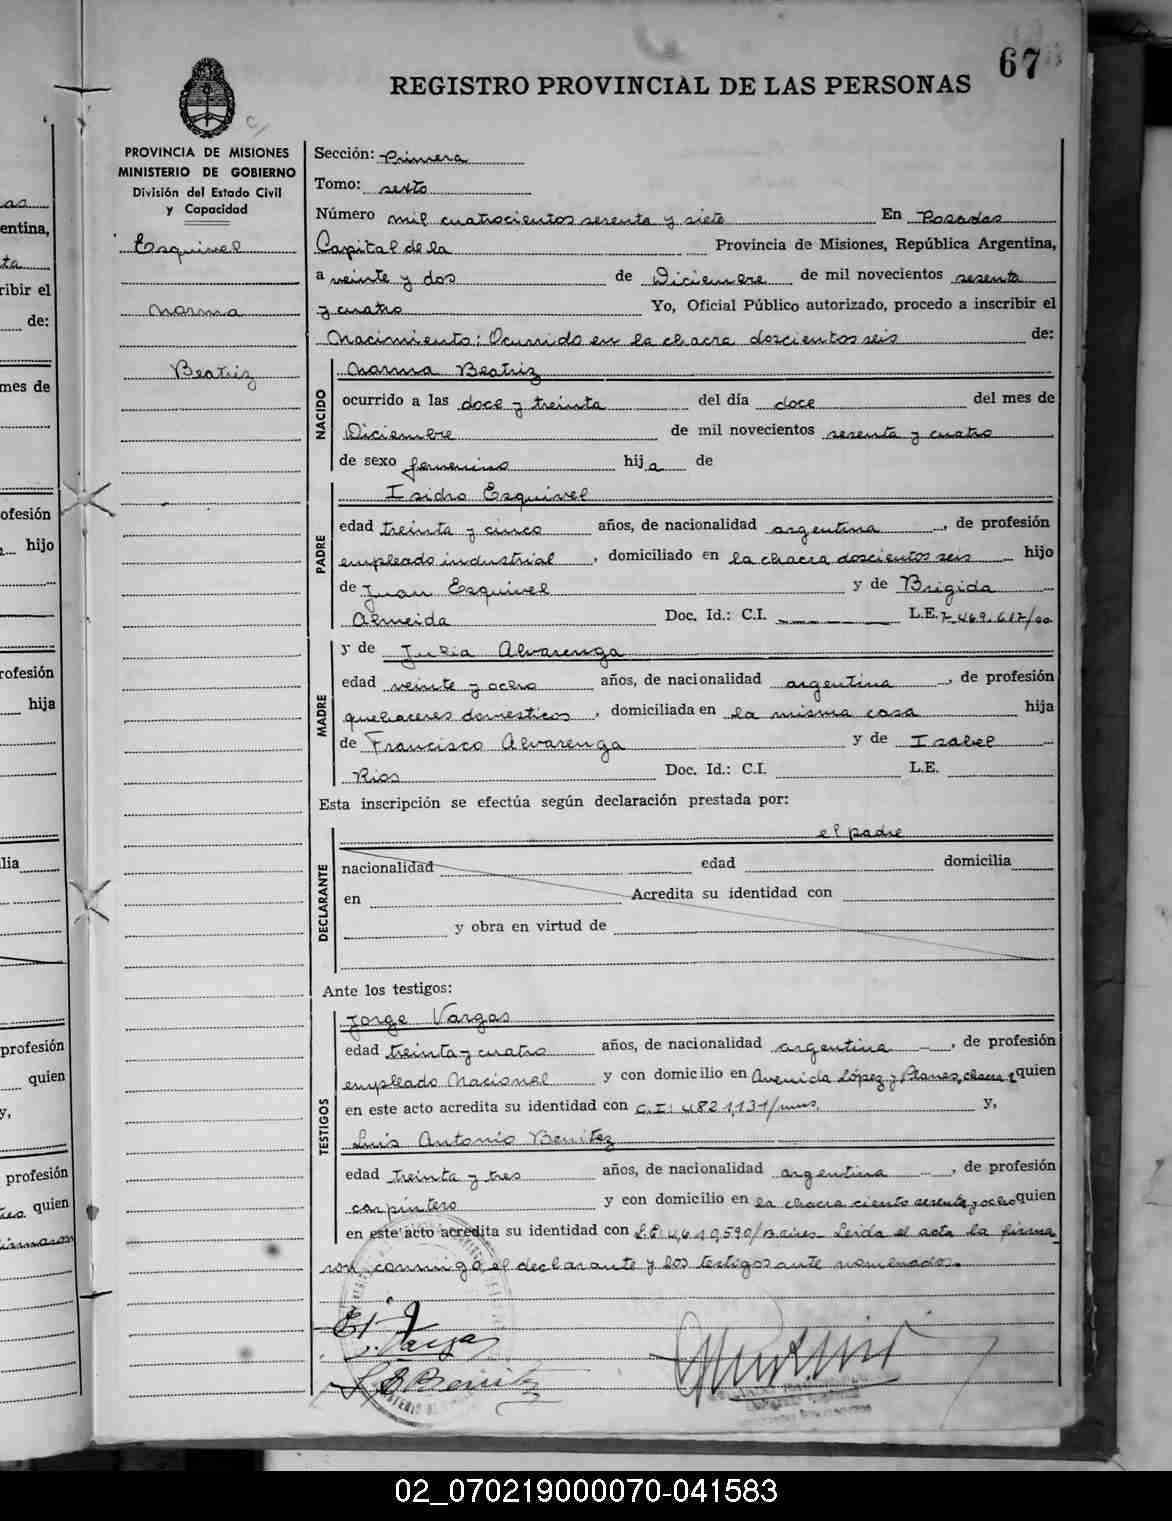 67
REGISTRO PROVINCIAL DE LAS PERSONAS
PROVINCIA DE MISIONES
MINISTERIO DE GOBIERNO
División del Estado Civil
y Capacidad
Esquivel
Norma
Beatriz
Sección: Primera
Tomo: sexto
Número mil cuatrocientos sesenta y siete En Posadas
Capital de la Provincia de Misiones, República Argentina,
a veinte y dos de Diciembre de mil novecientos sesenta
y cuatro Yo, Oficial Público autorizado, procedo a inscribir el
Nacimiento: Ocurrido en la chacra doscientos seis de:
NACIDO
Norma Beatriz
ocurrido a las doce y treinta del día doce del mes de
Diciembre de mil novecientos sesenta y cuatro
de sexo femenino hija de
PADRE
Isidro Esquivel
edad treinta y cinco años, de nacionalidad argentina, de profesión
empleado industrial, domiciliado en la chacra doscientos seis hijo
de Juan Esquivel y de Brigida
Almeida Doc. Id.: C.I. L.E. 7.469.617/
MADRE
y de Julia Alvarenga
edad veinte y ocho años, de nacionalidad argentina, de profesión
quehaceres domesticos, domiciliada en la misma casa hija
de Francisco Alvarenga y de Isabel
Rios Doc. Id.: C.I. L.E.
Esta inscripción se efectúa según declaración prestada por:
DECLARANTE
el padre
nacionalidad edad domicilia
en Acredita su identidad con
y obra en virtud de
Ante los testigos:
TESTIGOS
Jorge Vargas
edad treinta y cuatro años, de nacionalidad argentina, de profesión
empleado Nacional y con domicilio en Avenida López y Planes, chacra quien
en este acto acredita su identidad con C.I: y,
Luis Antonio Benitez
edad treinta y tres años, de nacionalidad argentina, de profesión
carpintero y con domicilio en la chacra ciento sesenta y ocho quien
en este acto acredita su identidad con Leida el acta la firma
ron conmigo, el declarante y los testigos ante nomenados.
Vargas
Benitez
02_070219000070-041583